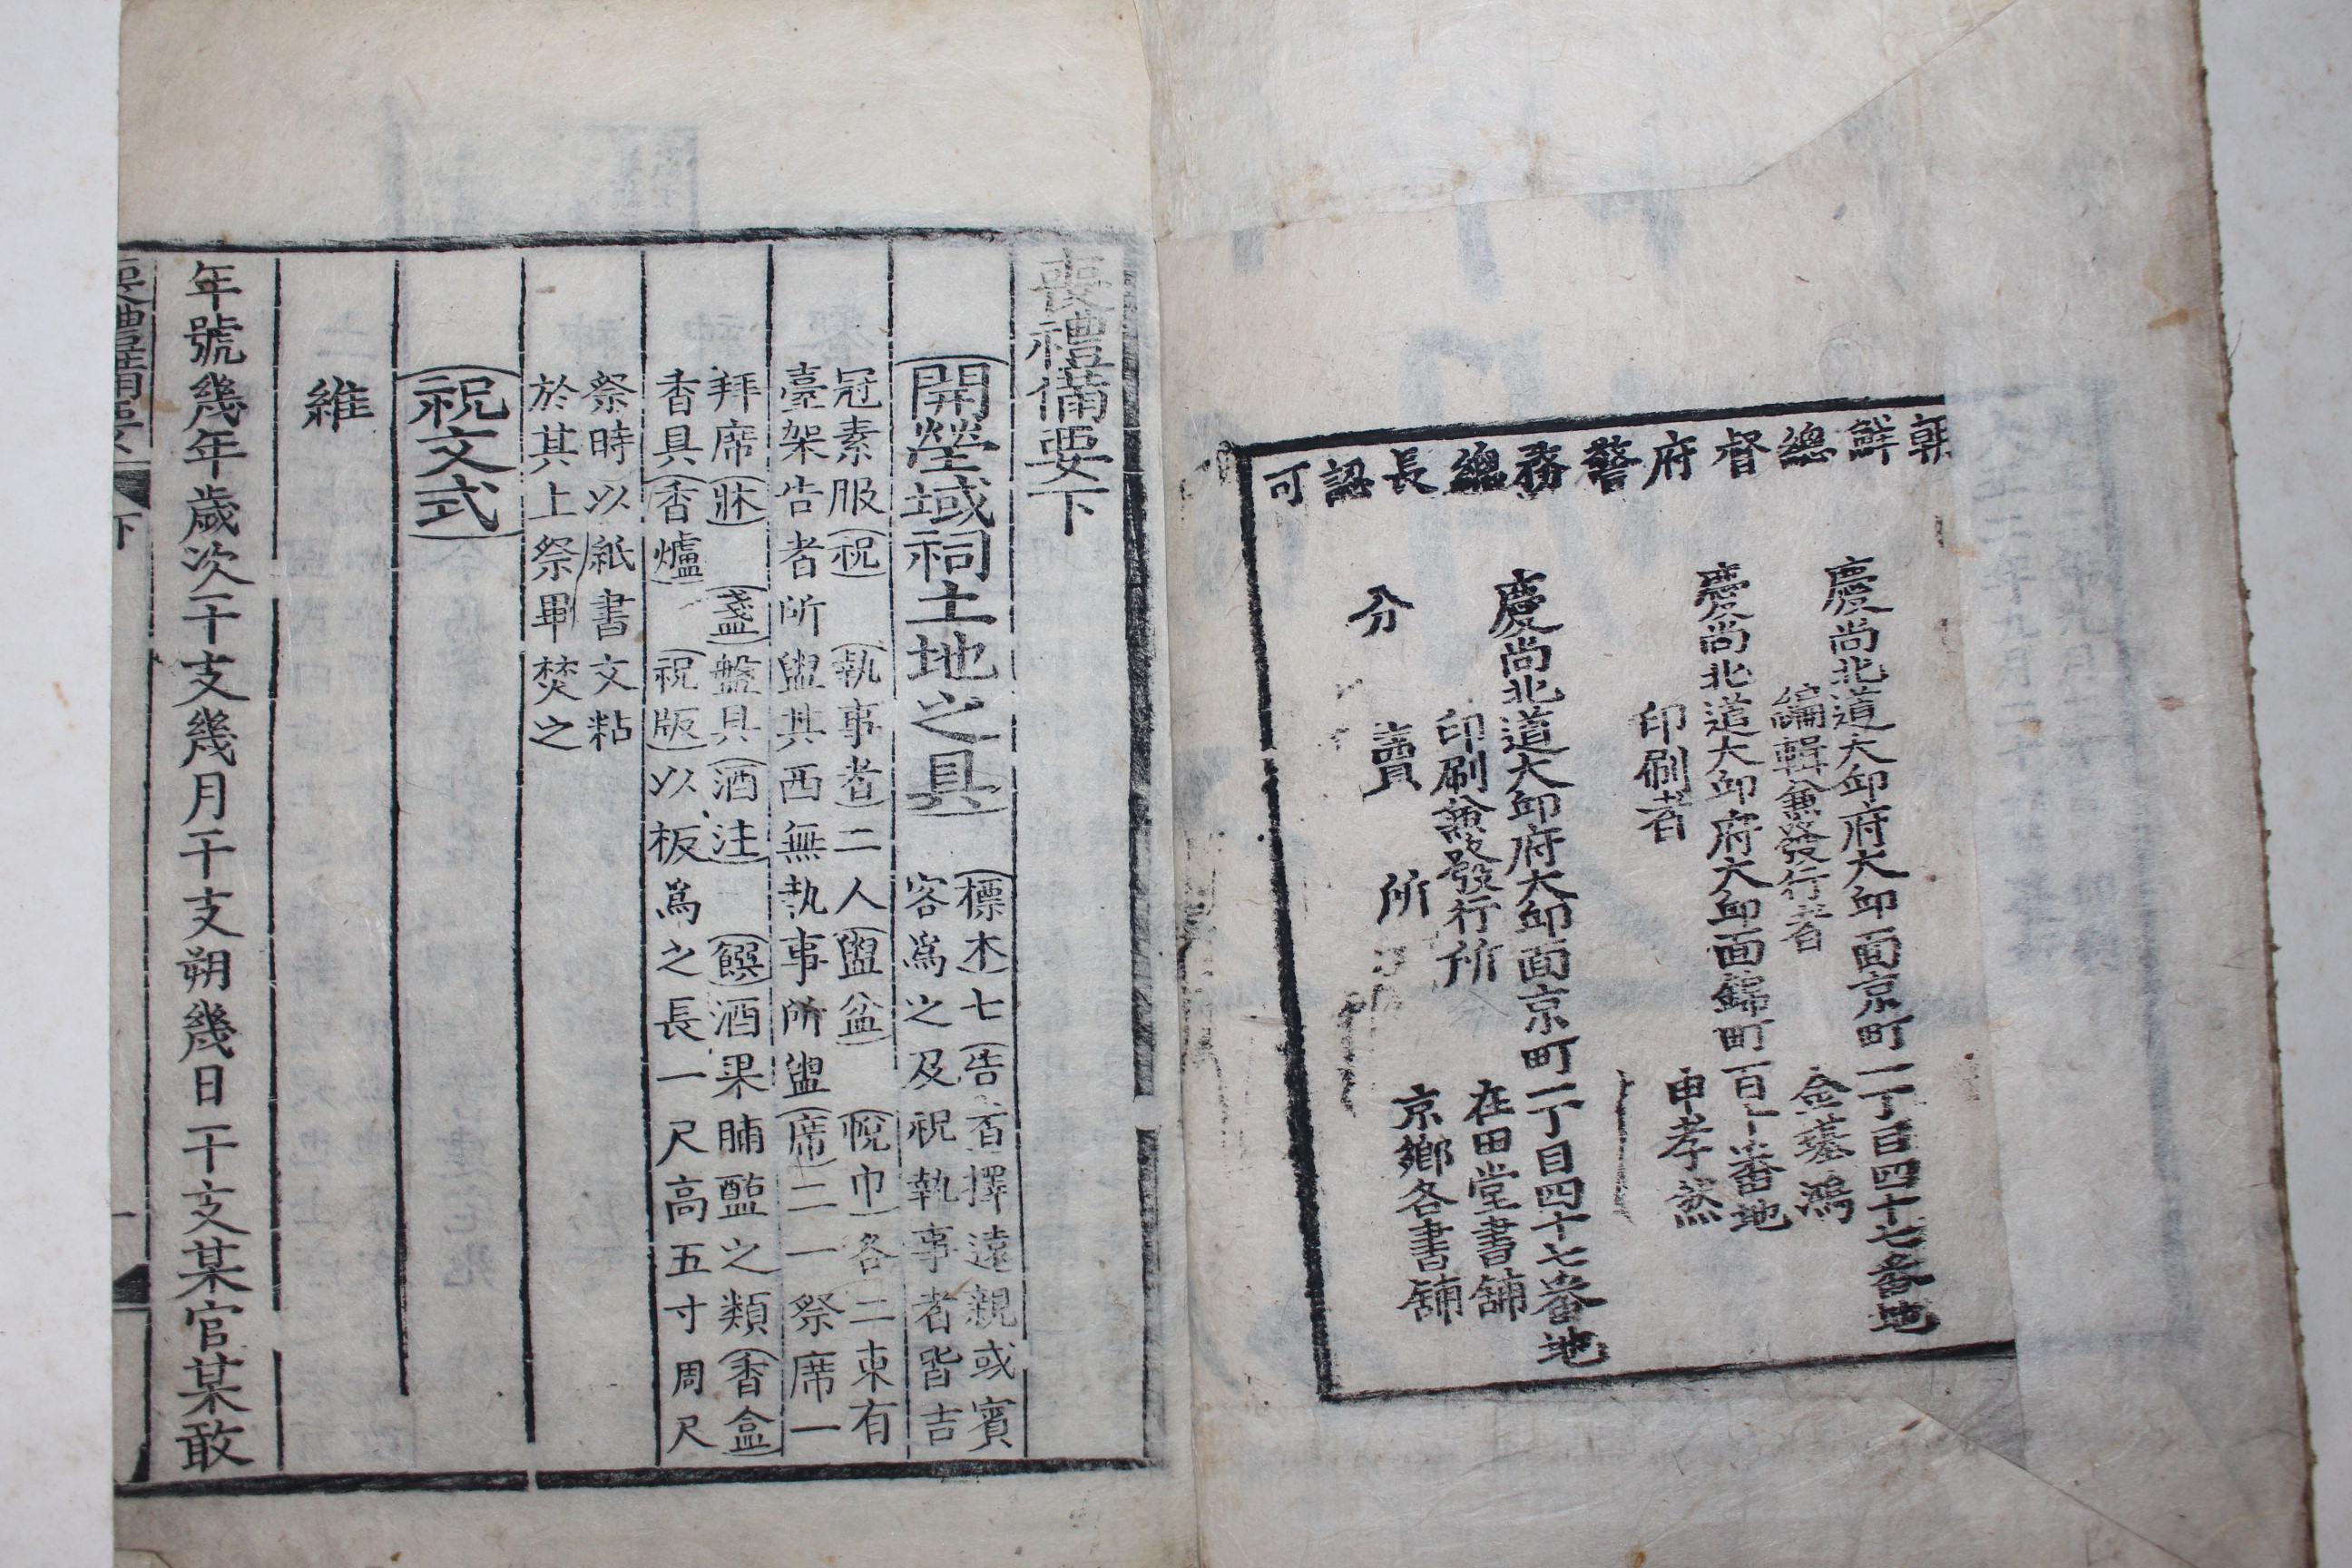 朝鮮總督府警務總長認可
慶尙北道大邱府大邱面京町一丁目四十七番地
編輯兼發行者 金璂鴻
慶尙北道大邱府大邱面錦町百十番地
印刷者 申孝然
慶尙北道大邱府大邱面京町一丁目四十七番地
印刷兼發行所 在田堂書舖
分賣所 京鄉各書舖
喪禮備要下
開塋域祠土地之具
標木七告者擇遠親或賓
客爲之及祝執事者皆吉
冠素服祝執事者二人盥盆帨巾各二東有
臺架告者所盥其西無執事所盥席二一祭席一
拜席牀盞盤具酒注饌酒果脯醢之類香盒
香具香爐祝版以板爲之長一尺高五寸周尺
祭時以紙書文粘
於其上祭畢焚之
祝文式
維
年號幾年歲次干支幾月干支朔幾日干支某官某敢
喪禮備要 下 一